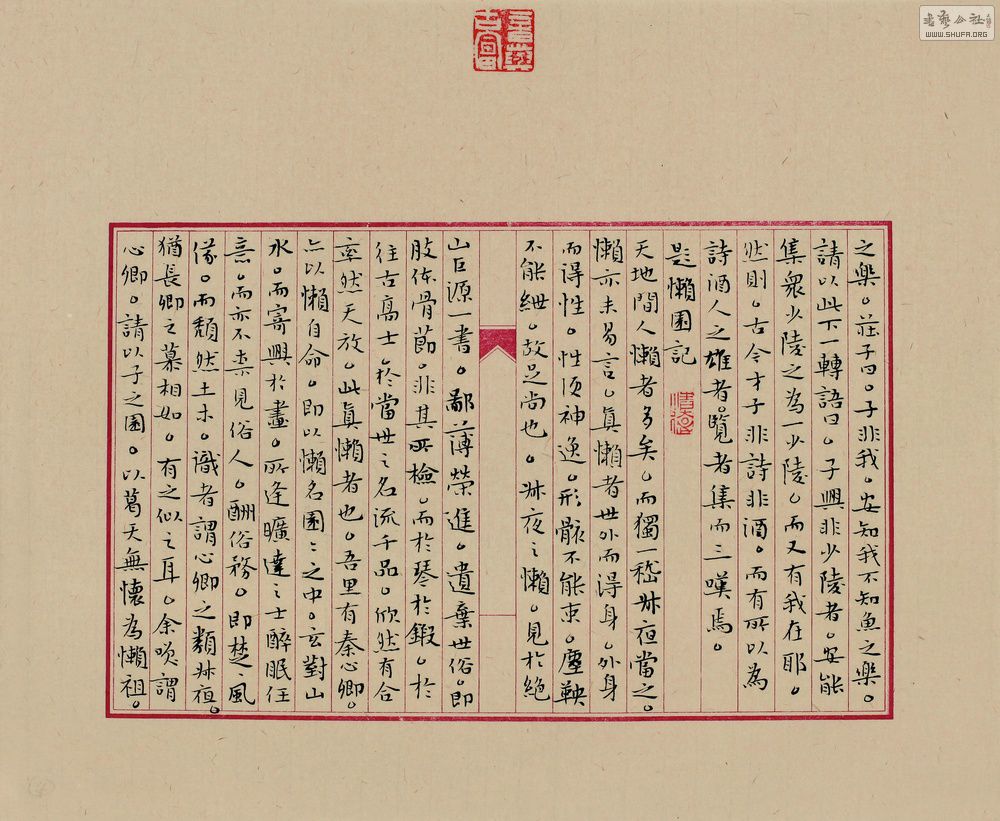 书艺公社
WWW.SHUFA.ORG
之樂。莊子曰。子非我。安知我不知魚之樂。
請以此下一轉語曰。子興非少陵者。安能
集衆少陵之為一少陵。而又有我在耶。
然則。古今才子非詩非酒。而有所以為
詩酒人之雄者。覽者集而三嘆焉。
題懶園記
天地間人懶者多矣。而獨一嵇叔夜當之。
懶亦未易言。真懶者世外而得身。外身
而得性。性頂神逸。形骸不能束。塵鞅
不能紲。故足尚也。叔夜之懶。見於絕
山巨源一書。鄙薄榮進。遺棄世俗。即
肢体骨節。非其所檢。而於琴於鍛。於
往古高士。於當世之名流千品。欣然有合
率然天放。此真懶者也。吾里有秦心卿。
亦以懶自命。即以懶名園〻之中。玄對山
水。而寄興於畫。所逢曠達之士醉眠任
意。而亦不柰見俗人。酬俗務。即楚〻風
儀。而頹然土木。識者謂心卿之類叔夜。
猶長卿之慕相如。有之似之耳。余謂
心卿。請以子之園。以葛天無懷為懶祖。